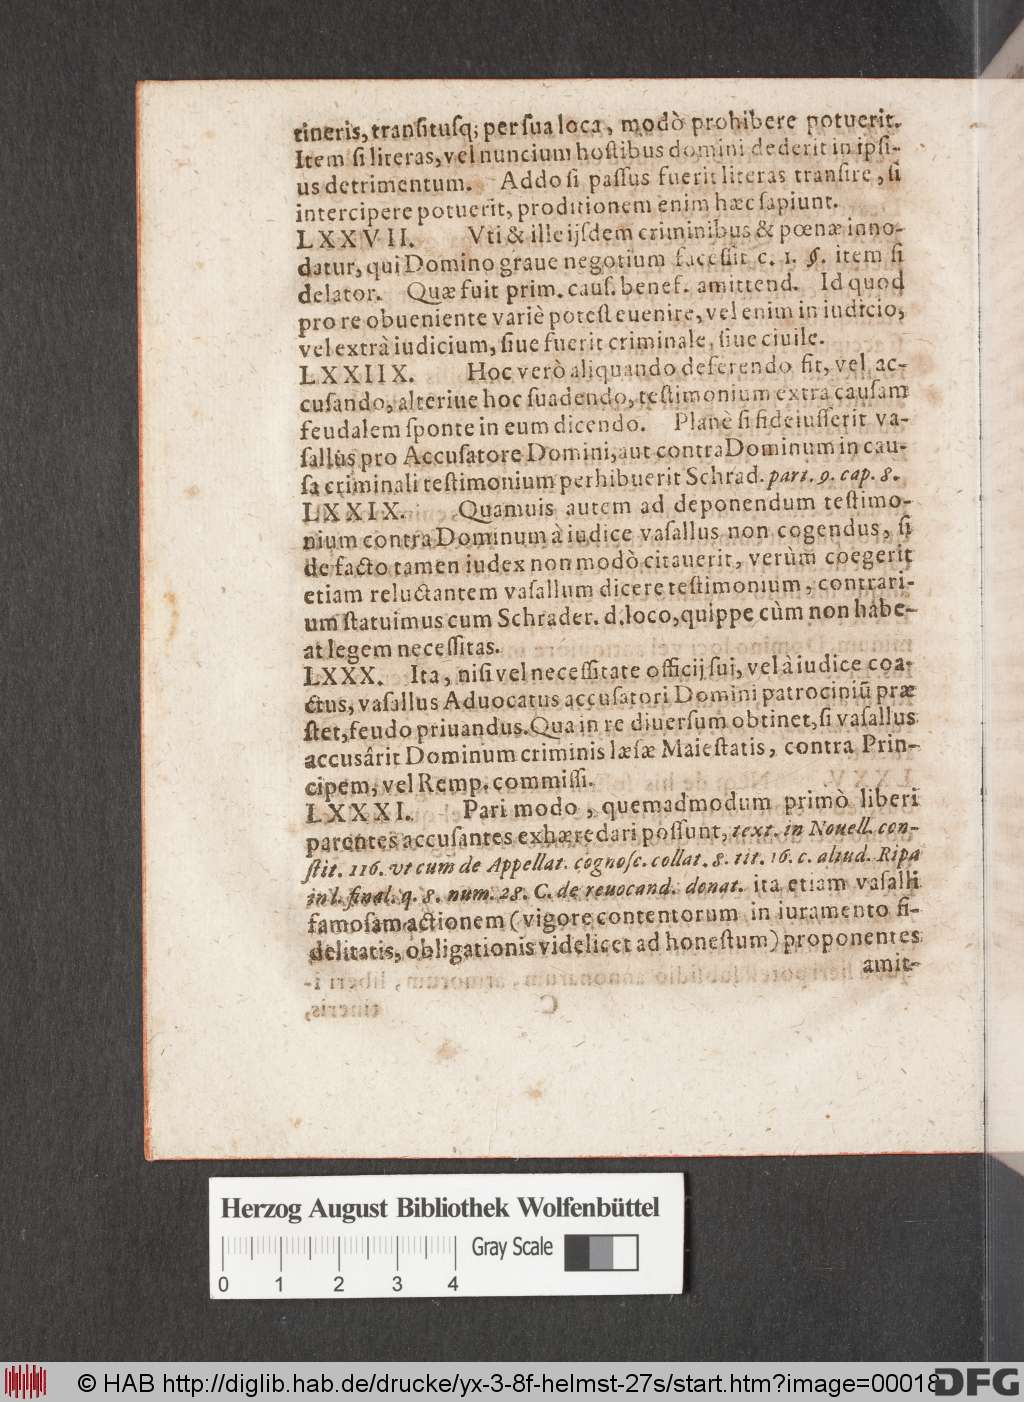 tineris, transitusq; per sua loca, modò prohibere potuerit.
Item si literas, vel nuncium hostibus domini dederit in ipsi-
us detrimentum. Addo si passus fuerit literas transire, si
intercipere potuerit, proditionem enim hæc sapiunt.
LXXVII. Vti & ille ijsdem criminibus & pœnæ inno-
datur, qui Domino graue negotium facessit c. 1. §. item si
delator. Quæ fuit prim. caus. benef. amittend. Id quod
pro re obueniente variè potest euenire, vel enim in iudicio,
vel extrà iudicium, siue fuerit criminale, siue ciuile.
LXXIIX. Hoc verò aliquando deferendo fit, vel ac-
cusando, alteriue hoc suadendo, testimonium extra causam
feudalem sponte in eum dicendo. Planè si fideiusserit va-
sallus pro Accusatore Domini, aut contra Dominum in cau-
sa criminali testimonium perhibuerit Schrad. part. 9. cap. 8.
LXXIX. Quamuis autem ad deponendum testimo-
nium contra Dominum à iudice vasallus non cogendus, si
de facto tamen iudex non modò citauerit, verùm coegerit
etiam reluctantem vasallum dicere testimonium, contrari-
um statuimus cum Schrader. d. loco, quippe cùm non habe-
at legem necessitas.
LXXX. Ita, nisi vel necessitate officij sui, vel à iudice coa-
ctus, vasallus Aduocatus accusatori Domini patrociniũ præ
stet, feudo priuandus. Qua in re diuersum obtinet, si vasallus
accusârit Dominum criminis læsæ Maiestatis, contra Prin-
cipem, vel Remp. commissi.
LXXXI. Pari modo, quemadmodum primò liberi
parentes accusantes exhæredari possunt, text. in Nouell. con-
stit. 116. vt cum de Appellat. cognosc. collat. 8. tit. 16. c. aliud. Ripa
in l. final. q. 8. num. 28. C. de reuocand. donat. ita etiam vasalli
famosam actionem (vigore contentorum in iuramento fi-
delitatis, obligationis videlicet ad honestum) proponentes
amit-
Herzog August Bibliothek Wolfenbüttel
Gray Scale
0 1 2 3 4
© HAB http://diglib.hab.de/drucke/yx-3-8f-helmst-27s/start.htm?image=00018
DFG